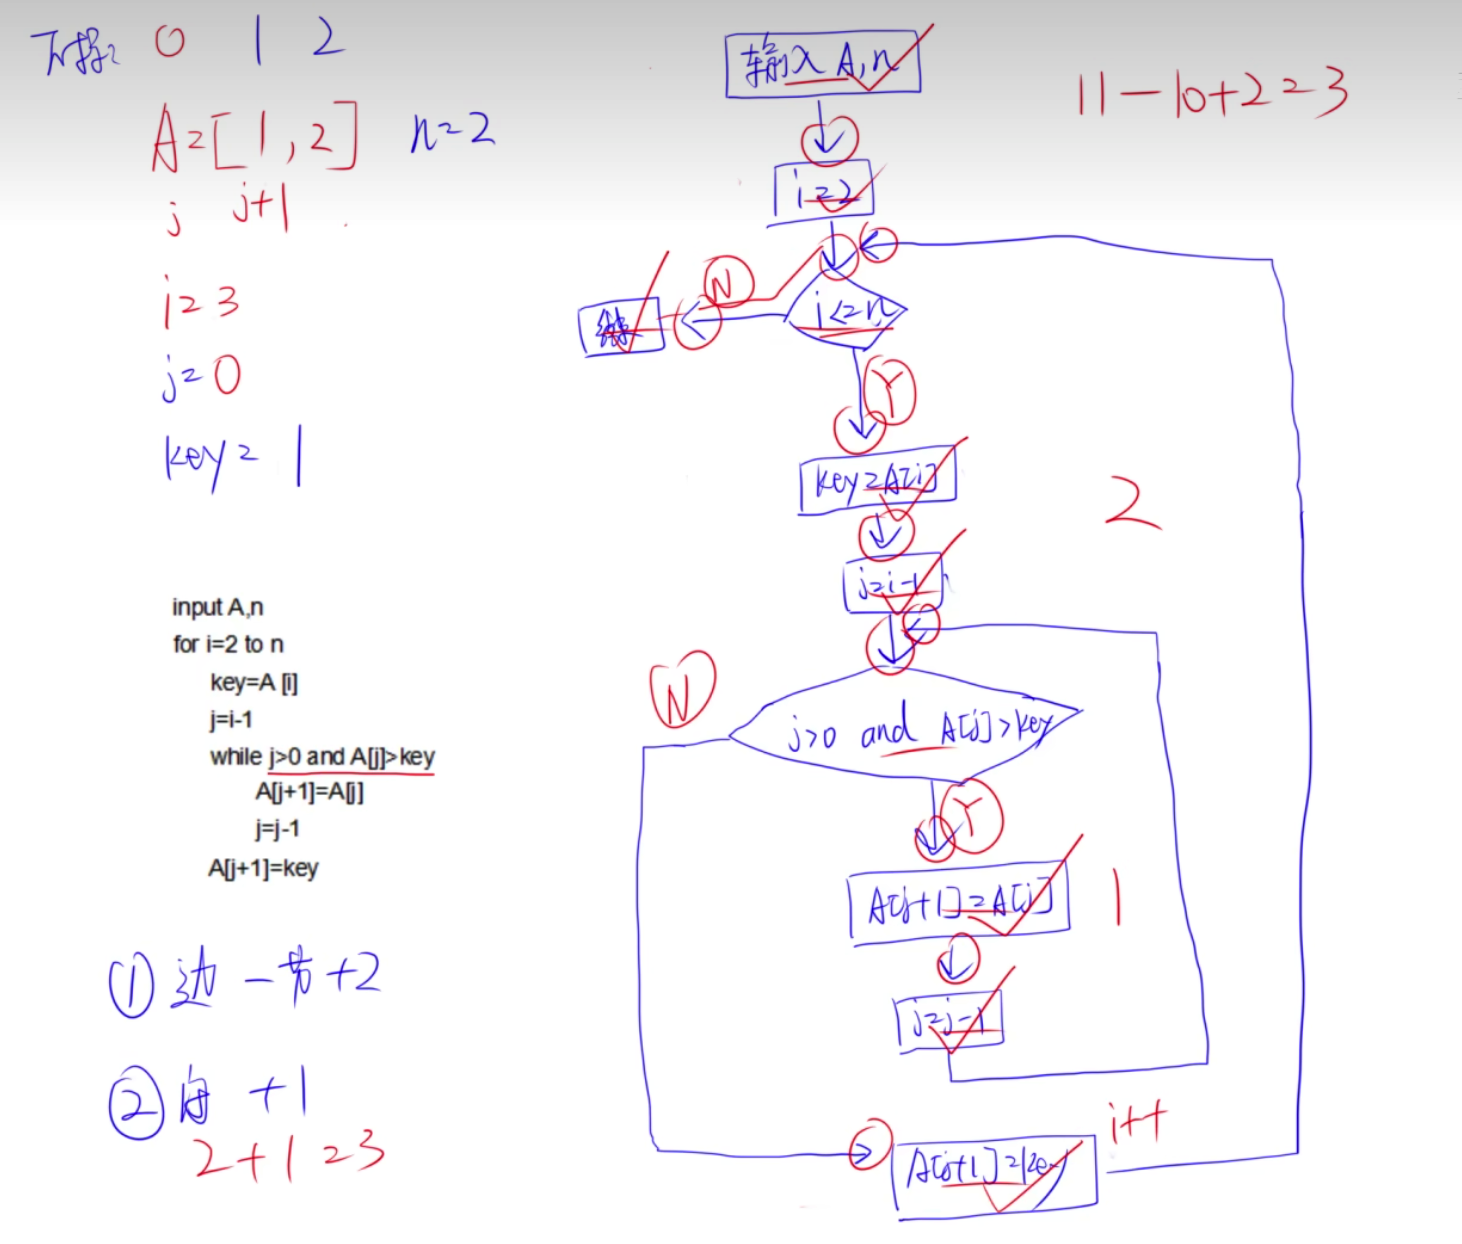 下标: 0 1 2
A=[1,2] n=2
j j+1
i=3
j=0
key=1
input A,n
for i=2 to n
key=A [i]
j=i-1
while j>0 and A[j]>key
A[j+1]=A[j]
j=j-1
A[j+1]=key
① 边-节+2
② 闭 +1
2+1=3
输入 A,n
11-10+2=3
i=2
N
结束
i<=n
Y
key=A[i]
2
j=i-1
N
j>0 and A[j]>key
Y
A[j+1]=A[j]
1
j=j-1
i++
A[j+1]=key